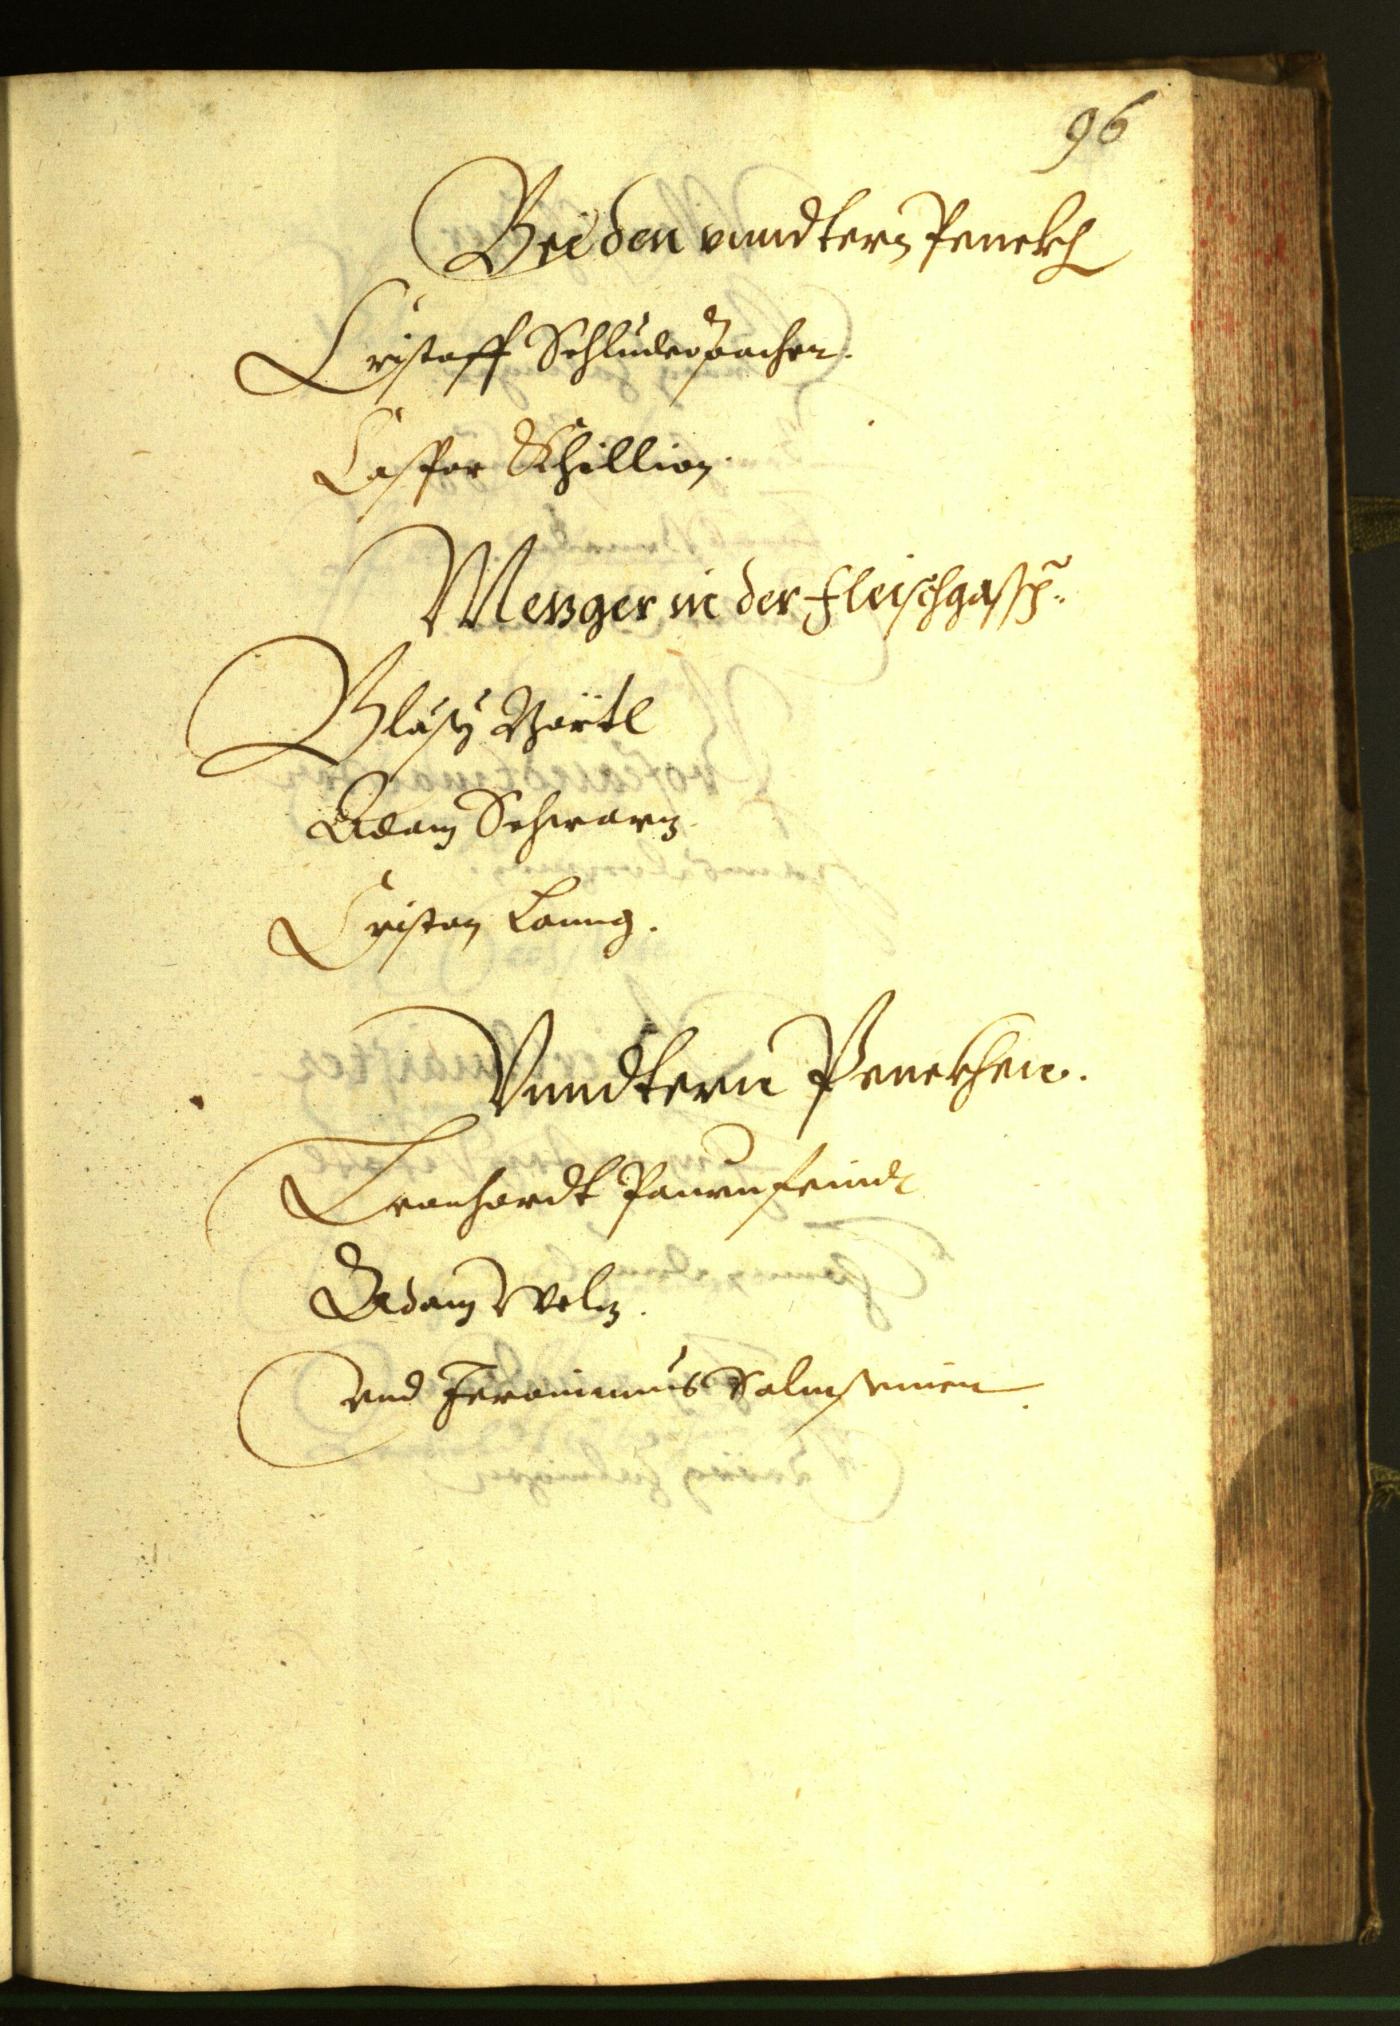 96
Bei den vnndtern Penckh
Cristoff Schluderpacher.
Caspar Schillion.
Mezger in der Fleischgassn.
Bläsy Börtl
Adam Schwarz.
Cristan Lanng.
Vnndtern Penckhen.
Leonhardt Paurnfeindt
Adam Welz.
vnd Jeronimus